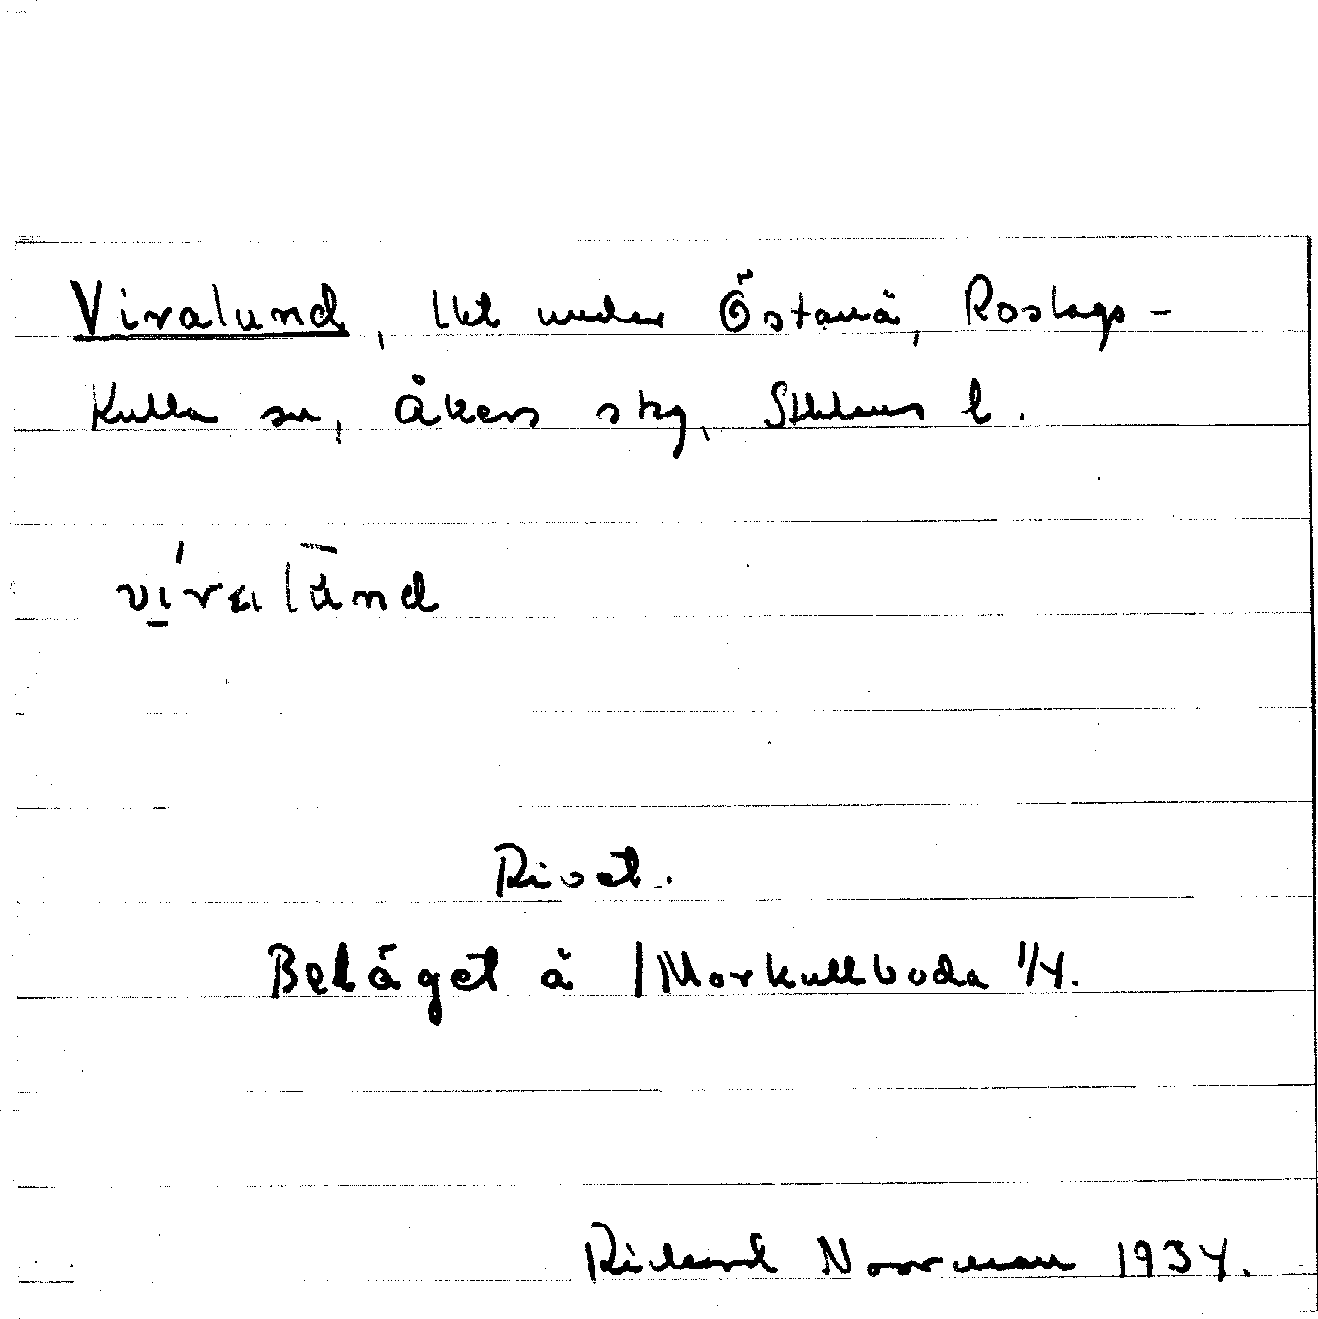 Viralund, lht under Östanå, Roslags-
Kulla sn, Åkers skg, Sthlms l.
ví̱ralūnd
Rivet.
Beläget å 1 Morkullboda 1/4.
Richard Norrman 1934.